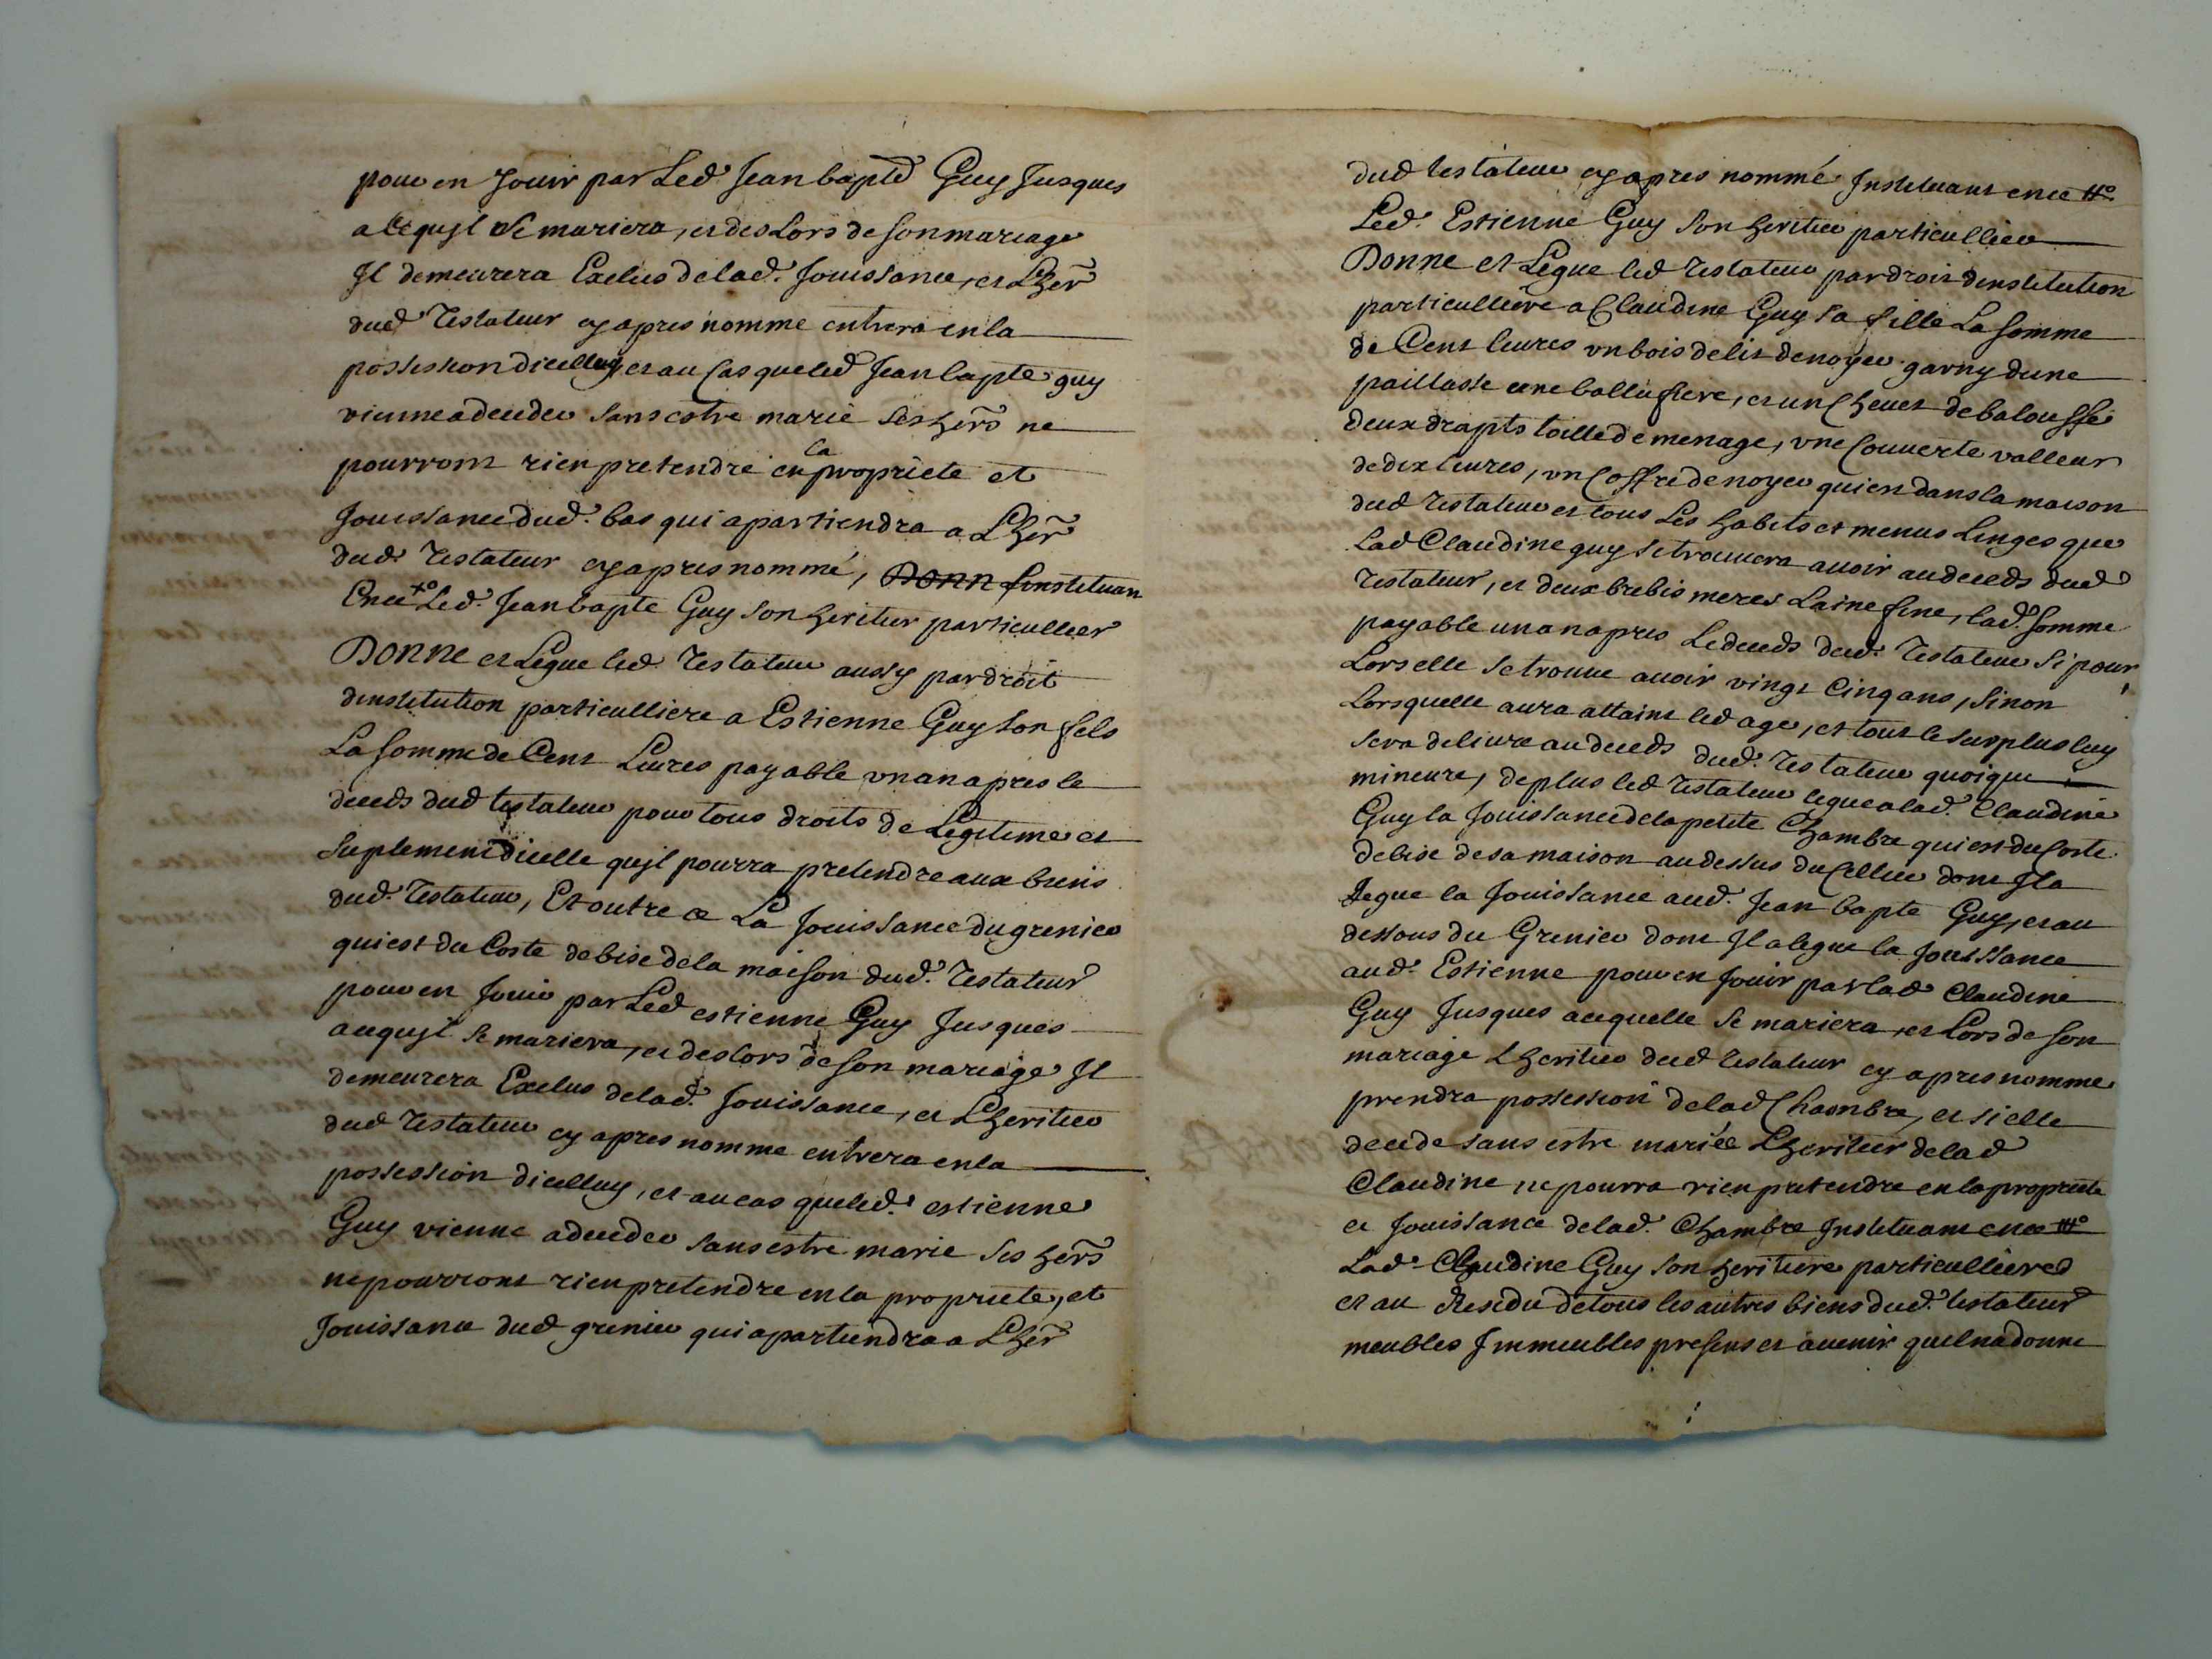 pour en Jouir par Led. Jean bapte Guy Jusques
a ce quil se mariera, et des Lors de son mariage
Il demeurera Exclus de lad. Jouissance, et Lher
dud Testateur cy apres nomme entrera en la
possession dicelluy et au Cas que led Jean bapte guy
vienne a deceder sans estre marié ses hers ne
pourront rien pretendre en la propriete et
Jouissance dud. bas qui apartiendra a Lher
dud. Testateur cy apres nommé, Donn Linstituan
Led. Jean bapte Guy son heritier particullier
Donne et Legue led Testateur aussy par droit
dinstitution particulliere a Estienne Guy son fils
La somme de Cent Livres payable un an apres le
deceds dud testateur pour tous droits de Legitime et
suplement dicelle quil pourra pretendre aux biens
dud. Testateur, Et outre ce La Jouissance du grenier
qui est du Coste de bise de la maison dud. Testateur
pour en Jouir par Led estienne Guy Jusques
a ce quil se mariera, et des lors de son mariage Il
demeurera Exclus de lad. Jouissance, et Lheritier
dud Testateur cy apres nomme entrera en la
possession dicelluy, et au cas que led. estienne
Guy vienne a deceder sans estre marie ses hers
ne pourront rien pretendre en la propriete, et
Jouissance dud grenier qui apartiendra a Lher
dud testateur cy apres nommé Instituant en ce
Led. Estienne Guy son heritier particullier
Donne et Legue led testateur par droit dinstitution
particulliere a Claudine Guy sa fille La somme
de Cent livres un bois de lit de noyer garny dune
paillasse une ballufiere, et un Chevet de balouffe
deux drapts toille de menage, une Couverte valleur
de dix livres, un Coffre de noyer qui en dans la maison
dud Testateur et tous Les habits et menus Linges que
Lad Claudine guy se trouvera avoir au deceds dud
Testateur, et deux brebis meres Laine fine, lad. somme
payable un an apres Le deceds dud. Testateur si pour
Lors elle se trouve avoir vingt Cinq ans, sinon
Lors quelle aura attaint led age, et tout le surplus luy
sera delivre au deceds dud. Testateur quoique
mineure, de plus led Testateur legue a lad. Claudine
Guy la Jouissance de la petite Chambre qui est du Coste
de bise de sa maison au dessus du Cellier dont Il a
legue la Jouissance aud. Jean bapte Guy, et au
dessous du Grenier dont Il a legue la Jouissance
aud. Estienne pour en Jouir par lad Claudine
Guy Jusques a ce quelle se mariera, et Lors de son
mariage Lheritier dud testateur cy apres nomme
prendra possession de lad Chambre, et si elle
decede sans estre mariée Lheritier de lad
Claudine ne pourra rien pretendre en la propriete
et Jouissance de lad. Chambre Instituant en ce
Lad. Claudine Guy son heritiere particulliere
et au Residu de tous les autres biens dud. testateur
meubles Immeubles presens et avenir quil na donne